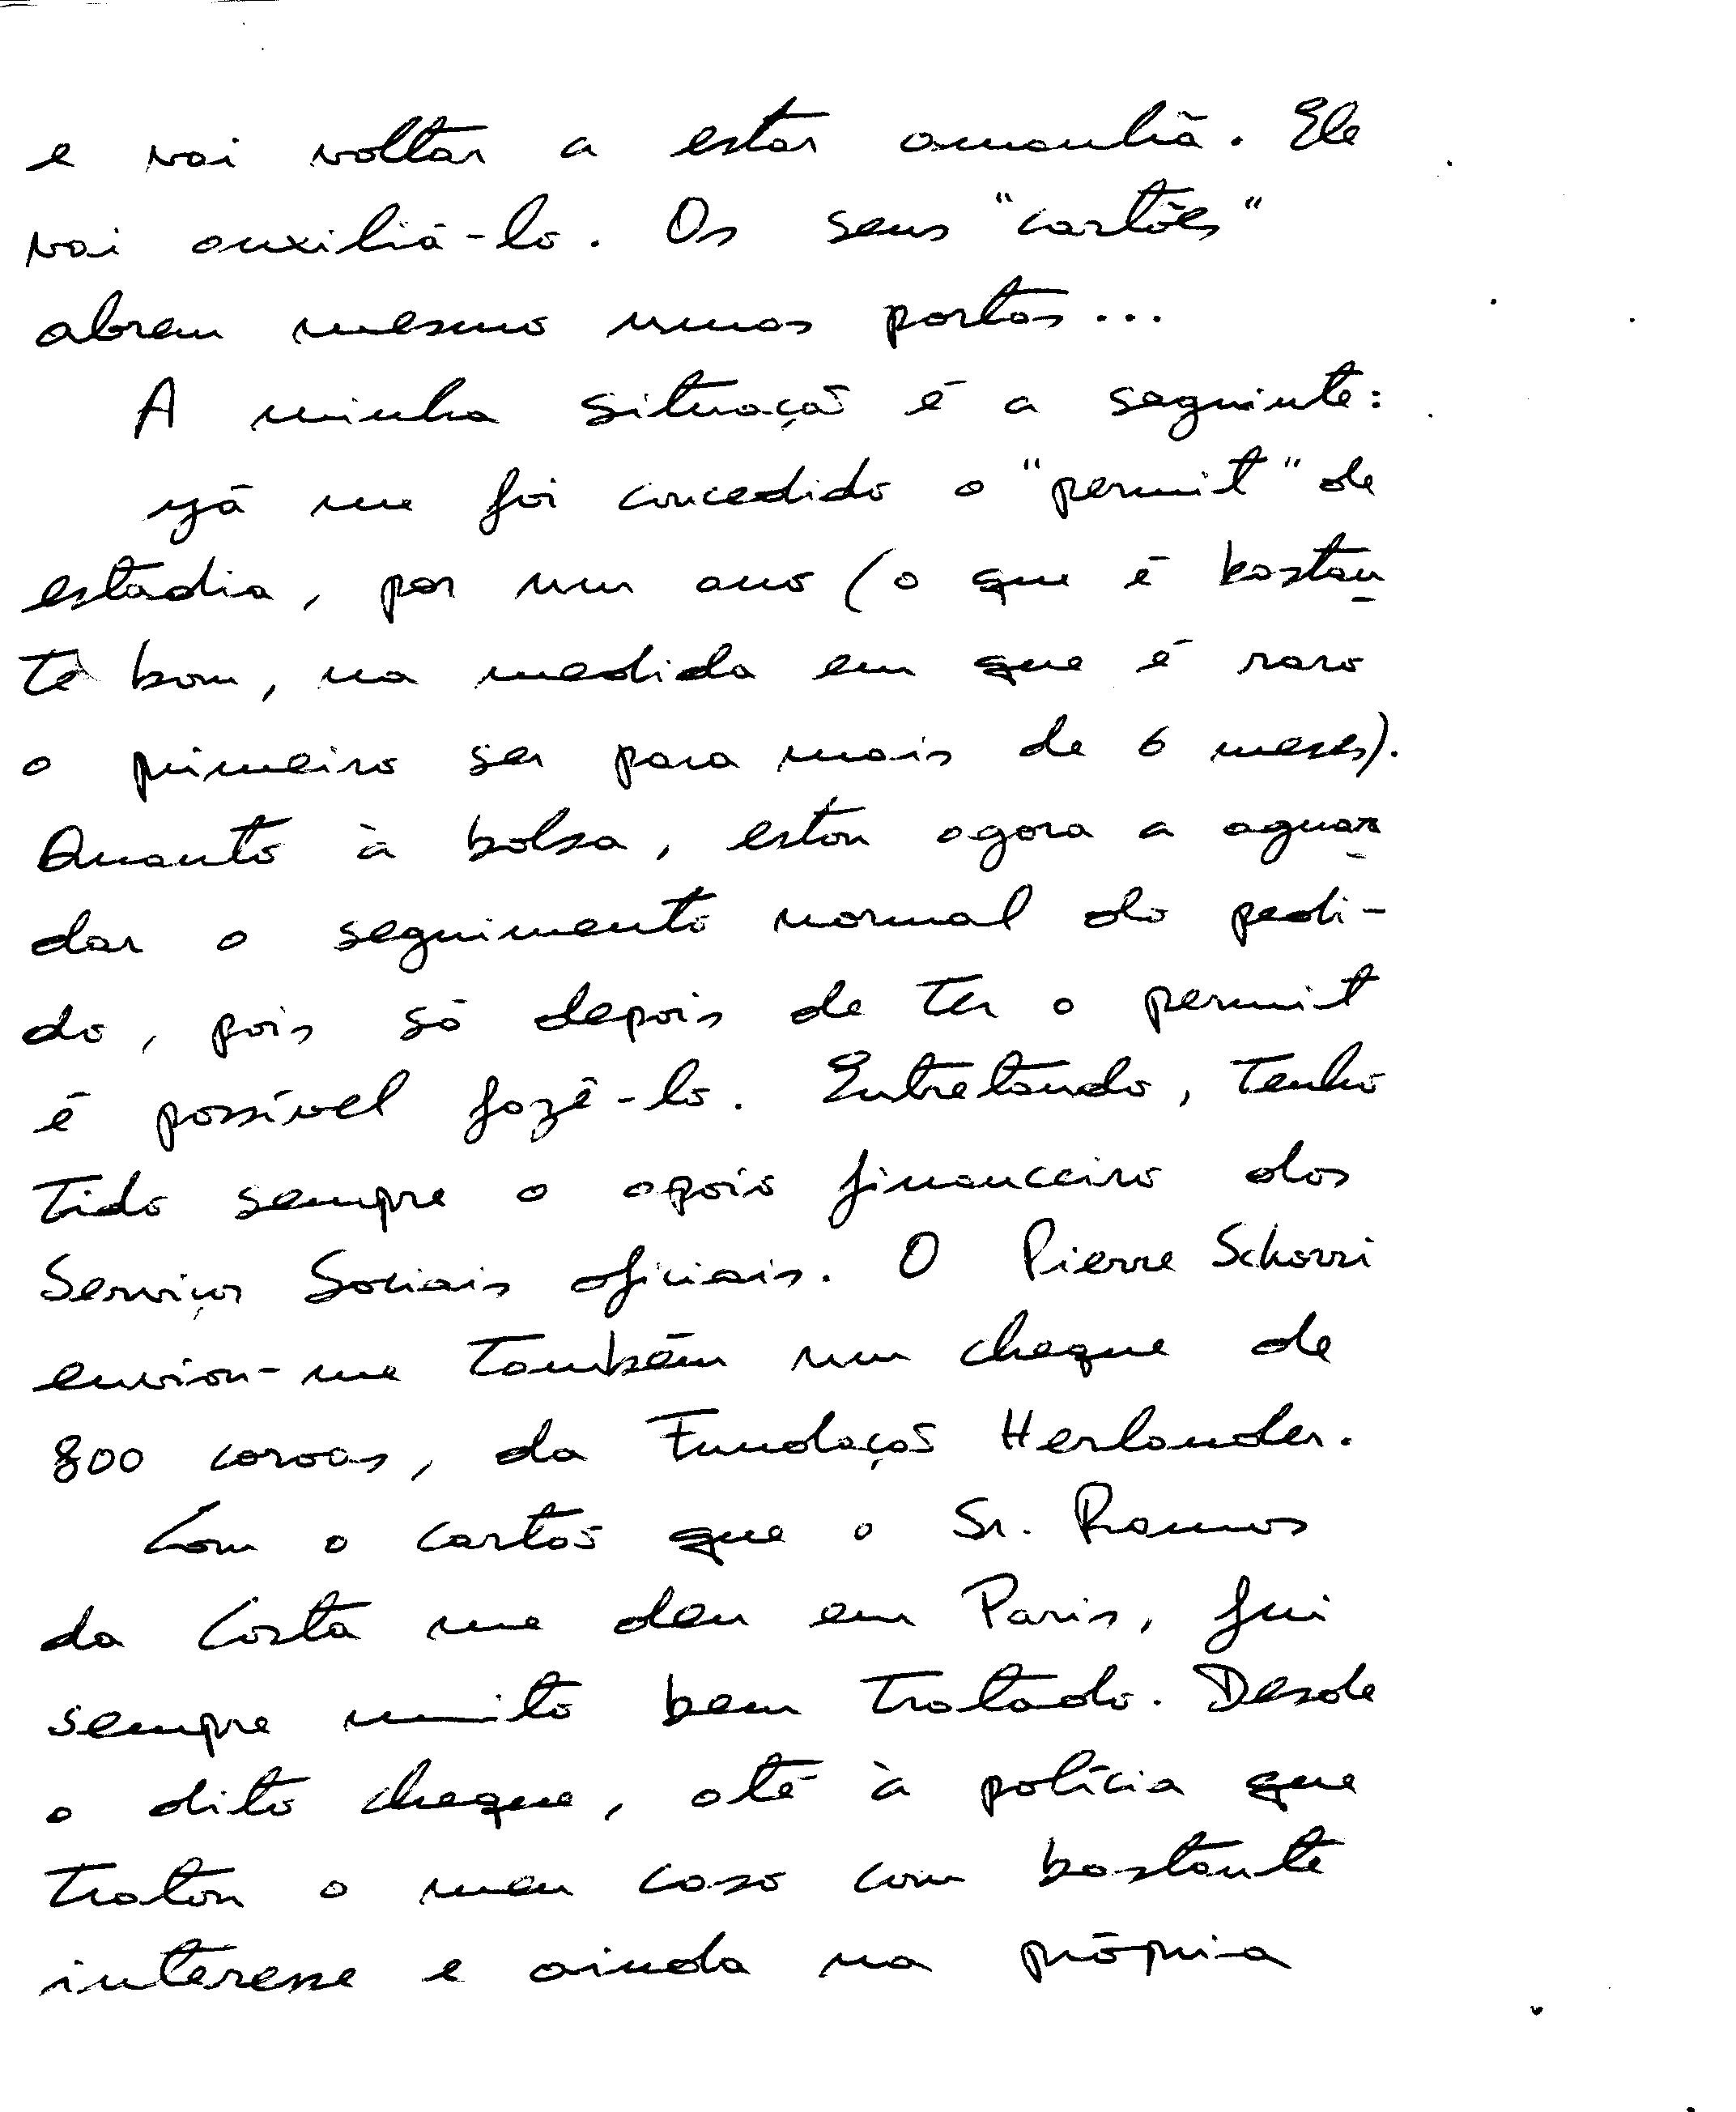 e vai voltar a estar amanhã. Ele
vai auxiliá-lo. Os seus "cartões"
abrem mesmo umas portas...
A minha situação é a seguinte:
já me foi concedido o "permit" de
estadia, por um ano (o que é bastan-
te bom, na medida em que é raro
o primeiro ser para mais de 6 meses).
Quanto à bolsa, estou agora a aguar-
dar o seguimento normal do pedi-
do, pois só depois de ter o permit
é possível fazê-lo. Entretando, tenho
tido sempre o apoio financeiro dos
Serviços Sociais oficiais. O Pierre Schorri
enviou-me também um cheque de
800 coroas, da Fundação Herlander.
Com o cartão que o Sr. Ramos
da Costa me deu em Paris, fui
sempre muito bem tratado. Desde
o dito cheque, até à polícia que
tratou o meu caso com bastante
interesse e ainda na própria